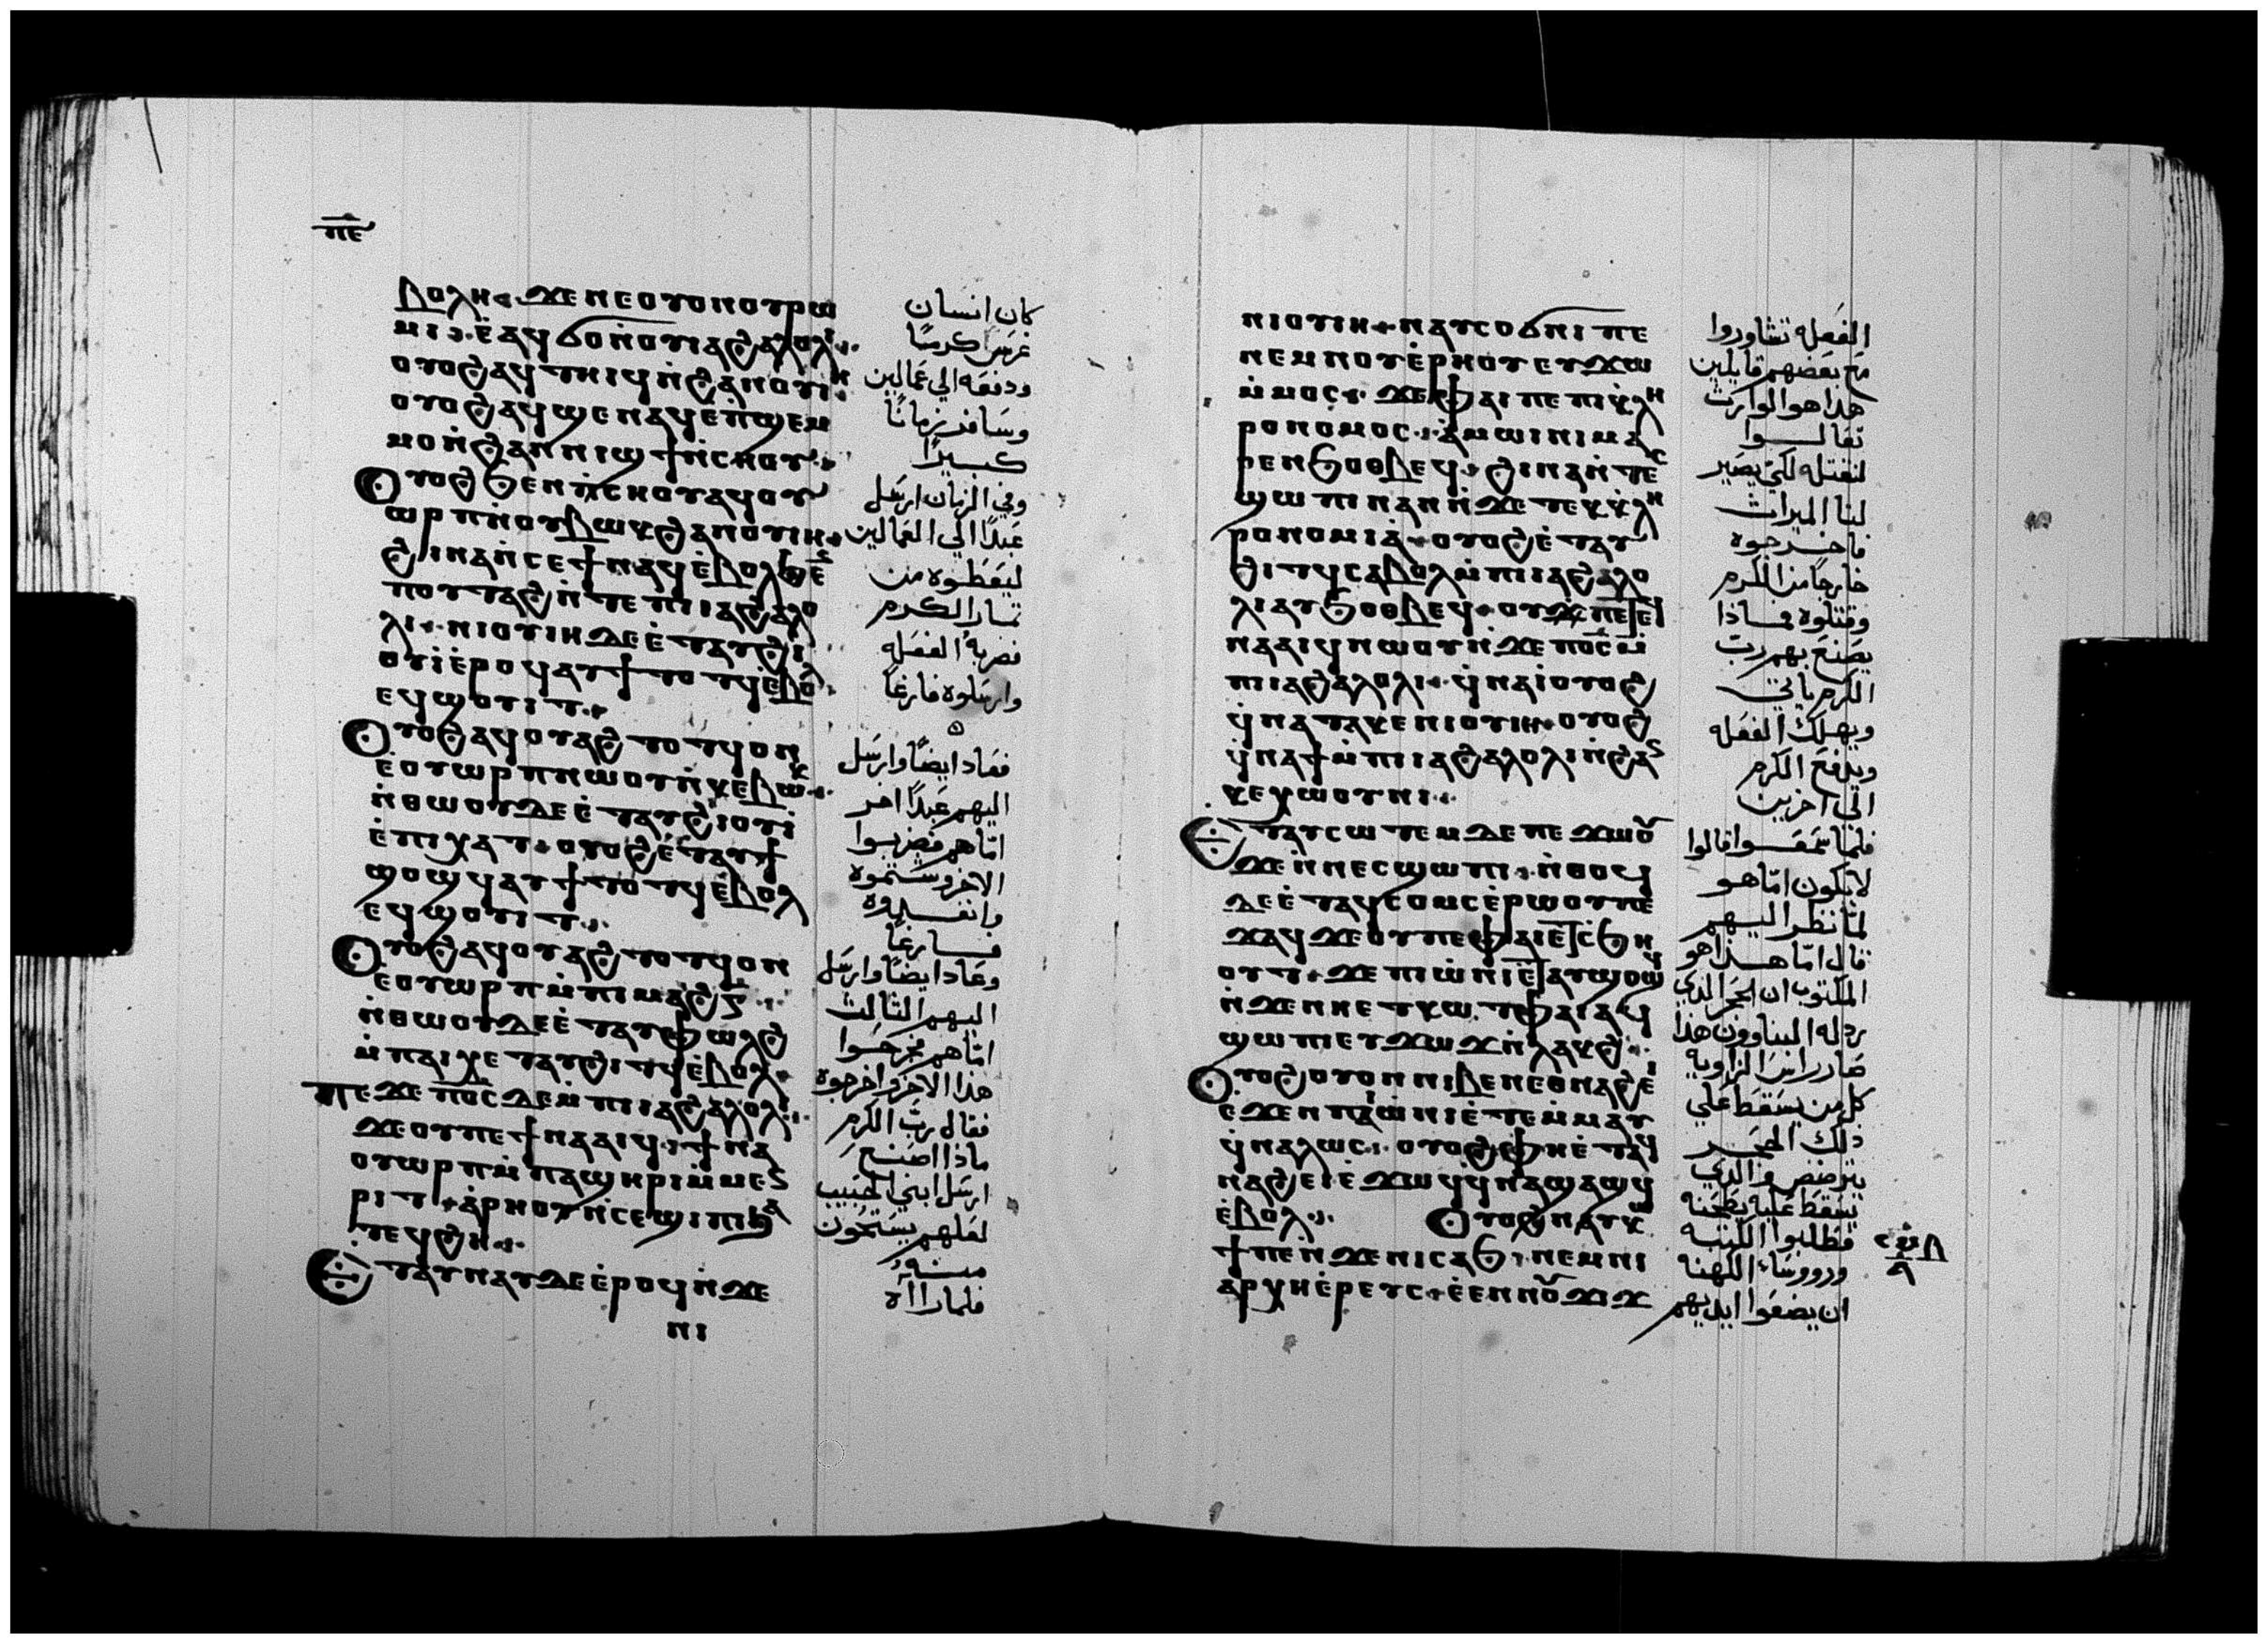 ⲡⲉ
ⲃⲟⲗⲏ ϫⲉ ⲛⲉ ⲟⲩⲟⲛ ⲟⲩⲣⲱ
ⲙⲓ ⲉ̀ⲁϥϭⲟ ⲛ̀ⲟⲩⲓⲁϩⲁⲗⲟⲗⲓ
ⲟⲩⲟϩ ⲁϥⲧⲏⲓϥ ⲛ̀ϩⲁⲛⲟⲩⲓⲏ
ⲟⲩⲟϩ ⲁϥϣⲉⲛⲁϥ ⲉ̀ⲡϣⲉⲙ
ⲙⲟ ⲛ̀ϩⲁⲛⲛⲓϣϯ ⲛ̀ⲥⲏⲟⲩ
Ⲟⲩⲟϩ ϧⲉⲛ ⲡⲥⲏⲟⲩ ⲁϥⲟⲩ
ⲱⲣⲡ ⲛ̀ⲟⲩⲃⲱⲕ ϩⲁⲛⲟⲩⲓⲏ
ϩⲓⲛⲁ ⲛ̀ⲥⲉϯ ⲛⲁϥ ⲉ̀ⲃⲟⲗ ϧⲉ
ⲡⲟⲩⲧⲁϩ ⲛ̀ⲧⲉ ⲡⲓⲓⲁϩⲁⲗⲟ
ⲗⲓ ⲛⲓⲟⲩⲓⲏ ⲇⲉ ⲉ̀ⲧⲁⲩϩⲓ
ⲟⲩⲓ̀ ⲉ̀ⲣⲟϥ ⲁⲩϯⲟⲧϥ ⲉ̀ⲃⲟⲗ
ⲉϥϣⲟⲩⲓⲧ
Ⲟⲩⲟϩ ⲁϥⲟⲩⲁϩⲧⲟⲧϥ ⲟⲛ
ⲉ̀ⲟⲩⲱⲣⲡ ⲛⲱⲟⲩ ⲛ̀ⲕⲉⲃⲱⲕ
ⲛ̀ⲑⲱⲟⲩ ⲇⲉ ⲉ̀ⲧⲁⲩϩⲓⲟⲩⲓ̀
ⲉ̀ⲡⲓⲭⲁⲧ ⲟⲩⲟϩ ⲉ̀ⲧⲁⲩϯ
ϣⲟϣϥ ⲁⲩϯⲟⲧϥ ⲉ̀ⲃⲟⲗ
ⲉϥϣⲟⲩⲓⲧ
Ⲟⲩⲟϩ ⲁϥⲟⲩⲁϩⲧⲟⲧϥ ⲟⲛ
ⲉ̀ⲟⲩⲱⲣⲡ ⲙ̀ⲡⲓⲙⲁϩⲅ̅
ⲛ̀ⲑⲱⲟⲩ ⲇⲉ ⲉ̀ⲧⲁⲩⲫⲱⲗϩ
ⲙ̀ⲡⲁⲓⲭⲉⲧ ⲁⲩϩⲓⲧϥ ⲉ̀ⲃⲟⲗ
ⲡⲉϫⲉ ⲡⲟ̅ⲥ̅ ⲇⲉ ⲙ̀ⲡⲓⲓⲁϩⲁⲗⲟⲗⲓ
ϫⲉ ⲟⲩ ⲡⲉϯⲛⲁⲁⲓϥ ϯⲛⲁ
ⲟⲩⲱⲣⲡ ⲙ̀ⲡⲁϣⲏⲣⲓ ⲙ̀ⲙⲉⲛ
ⲣⲓⲧ ⲁⲣⲏⲟⲩ ⲛ̀ⲥⲉϣⲓⲡⲓ ϧⲁ
ⲧⲉϥϩⲏ
Ⲉⲧⲁⲩⲛⲁⲩ ⲇⲉ ⲉ̀ⲣⲟϥ ⲛ̀ϫⲉ
ⲛⲓ
كان انسان
غرس كرمًا
ودفعه الي عمالين
وسافر زمانًا
كبيرًا
وفي الزمان ارسل
عبدًا الي العمالين
ليعطوه من
ثمار الكرم
فضربهُ الفعله
وارسلوه فارغًا
فعاد ايضًا وارسل
اليهم عبدًا اخر
امّا هم فضربوا
الاخر وشتموه
وانفذوه
فارغًا
وعاد ايضًا وارسل
اليهم الثالث
امّا هم فجرحوا
هذا الاخر واخرجوه
فقال ربّ الكرم
ماذا اصنع
ارسل ابني الحبيب
لعلهم يستحون
منه
فلما راآه
ⲛⲓⲟⲩⲓⲏ ⲛⲁⲩⲥⲟϭⲛⲓ ⲡⲉ
ⲛⲉⲙ ⲛⲟⲩⲉ̀ⲣⲏⲟⲩ ⲉⲩϫⲱ
ⲙ̀ⲙⲟⲥ ϫⲉ ⲫⲁⲓ ⲡⲉ ⲡⲓⲕ̀ⲗⲏ
ⲣⲟⲛⲟⲙⲟⲥ ⲁ̀ⲙⲱⲓⲛⲓ ⲙⲁ
ⲣⲉⲛϧⲟⲑⲃⲉϥ ϩⲓⲛⲁ ⲛ̀ⲧⲉⲥ
ϣⲱⲡⲓ ⲛⲁⲛ ⲛ̀ϫⲉ ⲧⲉϥⲕ̀ⲗⲏ
ⲣⲟⲛⲟⲙⲓⲁ̀ ⲟⲩⲟϩ ⲉ̀ⲧⲁⲩ
ϩⲓⲧϥ ⲥⲁⲃⲟⲗ ⲙ̀ⲡⲓⲓⲁϩⲁⲗⲟ
ⲗⲓ ⲁⲩϧⲟⲑⲃⲉϥ ⲟⲩ ϫⲉ ⲡⲉⲧⲉϥ
ⲛⲁⲁⲓϥ ⲛⲱⲟⲩ ⲛ̀ϫⲉ ⲡⲟ̅ⲥ̅ ⲙ̀
ⲡⲓⲓⲁϩⲁⲗⲟⲗⲓ ϥ̀ⲛⲁⲓ̀ ⲟⲩⲟϩ
ϥ̀ⲛⲁⲧⲁⲕⲉ ⲛⲓⲟⲩⲓⲏ ⲟⲩⲟϩ
ϥ̀ⲛⲁϯ ⲙ̀ⲡⲓⲓⲁϩⲁⲗⲟⲗⲓ ⲛ̀ϩⲁⲛ
ⲕⲉⲭⲱⲟⲩⲛⲓ
Ⲉⲧⲁⲩⲥⲱⲧⲉⲙ ⲇⲉ ⲡⲉϫⲱⲟⲩ
ϫⲉ ⲛ̀ⲛⲉⲥϣⲱⲡⲓ ⲛ̀ⲑⲟϥ
ⲇⲉ ⲉ̀ⲧⲁϥⲥⲟⲙⲥ ⲉ̀ⲣⲱⲟⲩ ⲡⲉ
ϫⲁϥ ϫⲉ ⲟⲩ ⲡⲉ ⲫⲁⲓ ⲉⲧⲥ̀ϧⲏ
ⲟⲩⲧ ϫⲉ ⲡⲓⲱ̀ⲛⲓ ⲉ̀ⲧⲁⲩϣⲟϣϥ
ⲛ̀ϫⲉ ⲛⲏⲉⲧⲕⲱⲧ ⲫⲁⲓ ⲁϥ
ϣⲱⲡⲓ ⲉⲩϫⲱϫ ⲛ̀ⲗⲁⲕϩ
Ⲟⲩⲟϩ ⲟⲩⲟⲛ ⲛⲓⲃⲉⲛ ⲉⲑⲛⲁϩⲉⲓ
ⲉ̀ϫⲉⲛ ⲡⲓⲱ̀ⲛⲓ ⲉ̀ⲧⲉⲙ̀ⲙⲁⲩ
ϥ̀ⲛⲁⲗⲱⲥ ⲟⲩⲟϩ ⲫⲏ ⲉ̀ⲧⲁϥ
ⲛⲁϩⲉⲓ ⲉ̀ϫⲱϥ ϥ̀ⲛⲁϣⲁϣϥ
ⲉ̀ⲃⲟⲗ Ⲟⲩⲟϩ ⲛⲁⲩⲕⲱ
ϯ ⲡⲉ ⲛ̀ϫⲉ ⲛⲓⲥⲁϧ ⲛⲉⲙ ⲛⲓ
ⲁⲣⲭⲏⲉ̀ⲣⲉⲩⲥ ⲉ̀ⲉⲛ ⲛⲟⲩϫⲓϫ
الفعله تشاوروا
مع بعضهم قايلين
هذا هو الوارث
تعالوا
لنقتله لكي يصير
لنا الميراث
فاخرجوه
خارجًا من الكرم
وقتلوه فماذا
يصنع بهم ربّ
الكرم ياتي
ويهلك الفعله
ويدفع الكرم
الي اخرين
فلمّا سمعوا قالوا
لا يكون امّا هو
لمّا نظر اليهم
قال امّا هذا هو
المكتوب ان الحجر الذي
رذله البناوون هذا
صار راس الزاويه
كل من يسقط علي
ذلك الحجر
يترضض والذي
يسقط عليه يطحنه
فطلبوا الكتبه
وروساء الكهنه
ان يضعوا ايديهم